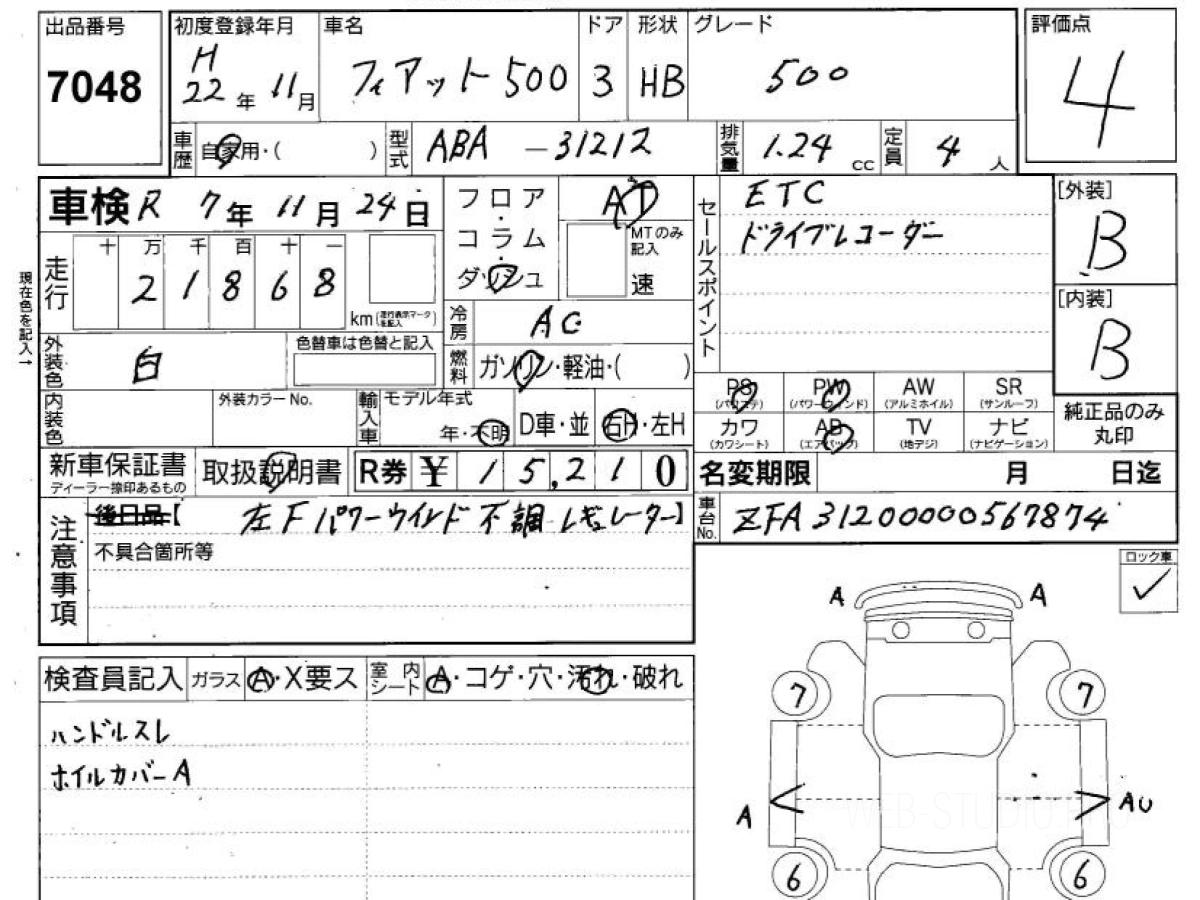 出品番号 初度登録年月 車名 ドア 形状 グレード 評価点
7048 H22年 11月 フィアット500 3 HB 500 4
車歴 自家用・( ) 型式 ABA-31212 排気量 1.24cc 定員 4人
車検 R7年 11月 24日 フロア・コラム・ダッシュ AT セールスポイント ETC [外装]
ドライブレコーダー B
MTのみ記入 速
走行 十 万 千 百 十 一
2 1 8 6 8 km (走行表示マークを記入)
現在色を記入→
[内装]
B
冷房 AC
外装色 白 色替車は色替と記入 燃料 ガソリン・軽油・( )
PS (パワステ) PW (パワーウインド) AW (アルミホイル) SR (サンルーフ) 純正品のみ丸印
内装色 外装カラーNo. 輸入車 モデル年式 年・不明 D車・並 右H・左H
カワ (カワシート) AB (エアバッグ) TV (地デジ) ナビ (ナビゲーション)
新車保証書 ディーラー捺印あるもの 取扱説明書 R券 ¥15,210 名変期限 月 日迄
注意事項 後日品【左Fパワーウインド不調 レギュレーター】 車台No. ZFA31200000567874
不具合箇所等
ロック車
A A
検査員記入 ガラス A・X要ス 室内シート A・コゲ・穴・汚れ・破れ
7 7
ハンドルスレ
ホイルカバーA
A AU
WEB-STUDIO.PRO
6 6